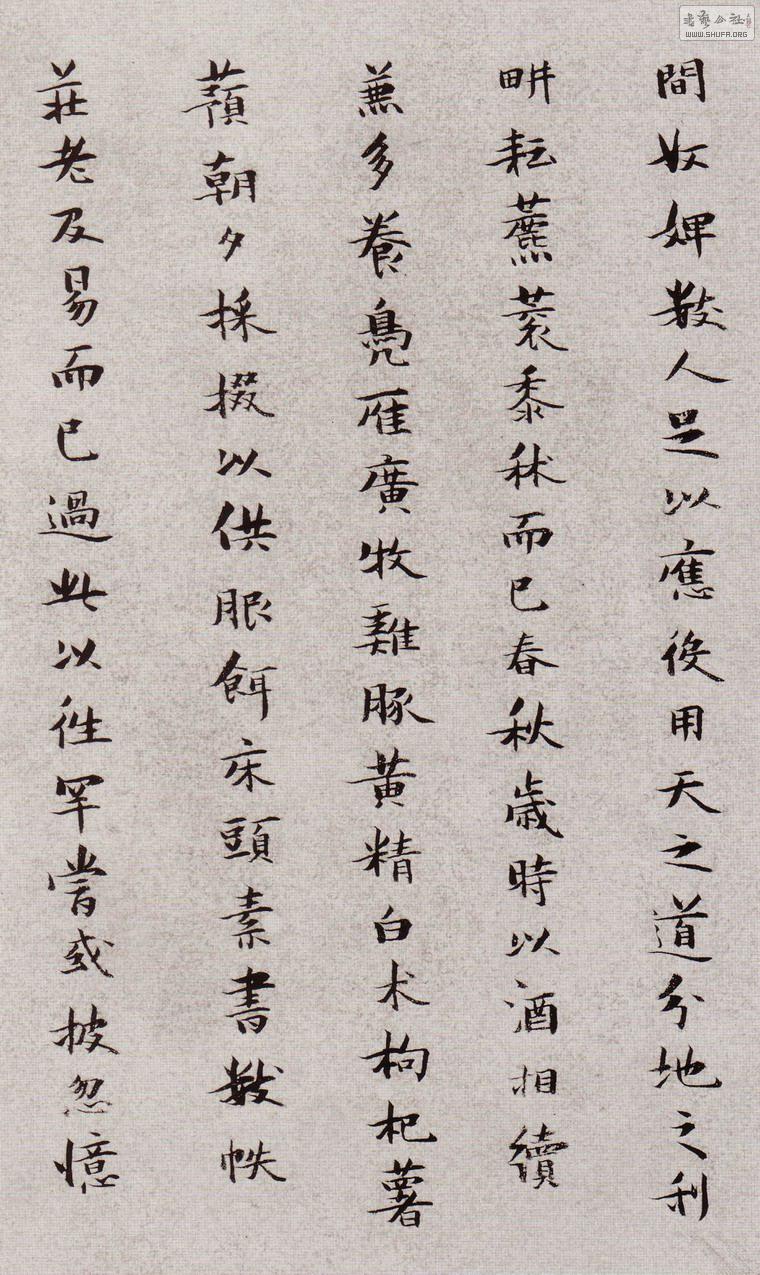 間奴婢數人足以應役用天之道分地之利
畊耘藨蓘黍秫而已春秋歲時以酒相續
兼多養鳧雁廣牧雞豚黃精白术枸杞薯
蕷朝夕採掇以供服餌床頭素書數帙
莊老及易而已過此以徃罕嘗或披忽憶
WWW.SHUFA.ORG